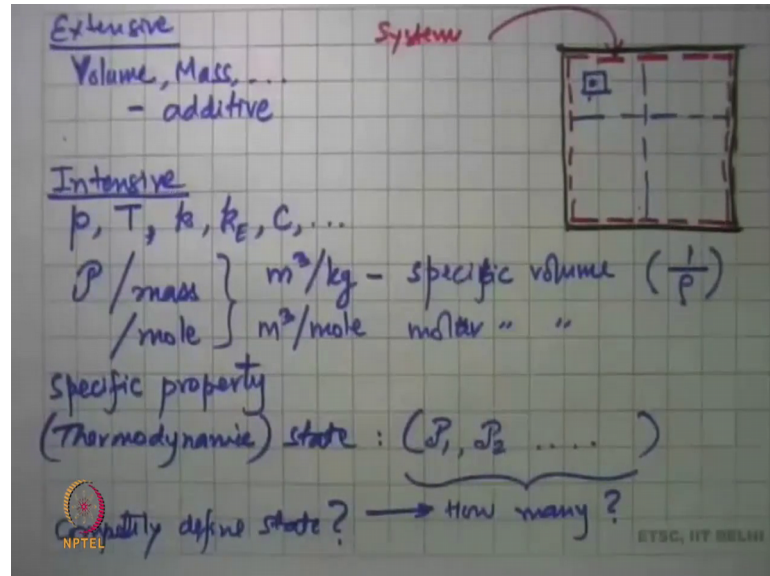 Extensive
System
Volume, Mass, ...
- additive
Intensive
p, T, k, k_E, C, ...
P / mass } m³/kg - specific volume (1/ρ)
/ mole } m³/mole molar " "
specific property
(Thermodynamic) state : (P₁, P₂ .... )
completely define state? → How many?
NPTEL
ETSC, IIT DELHI